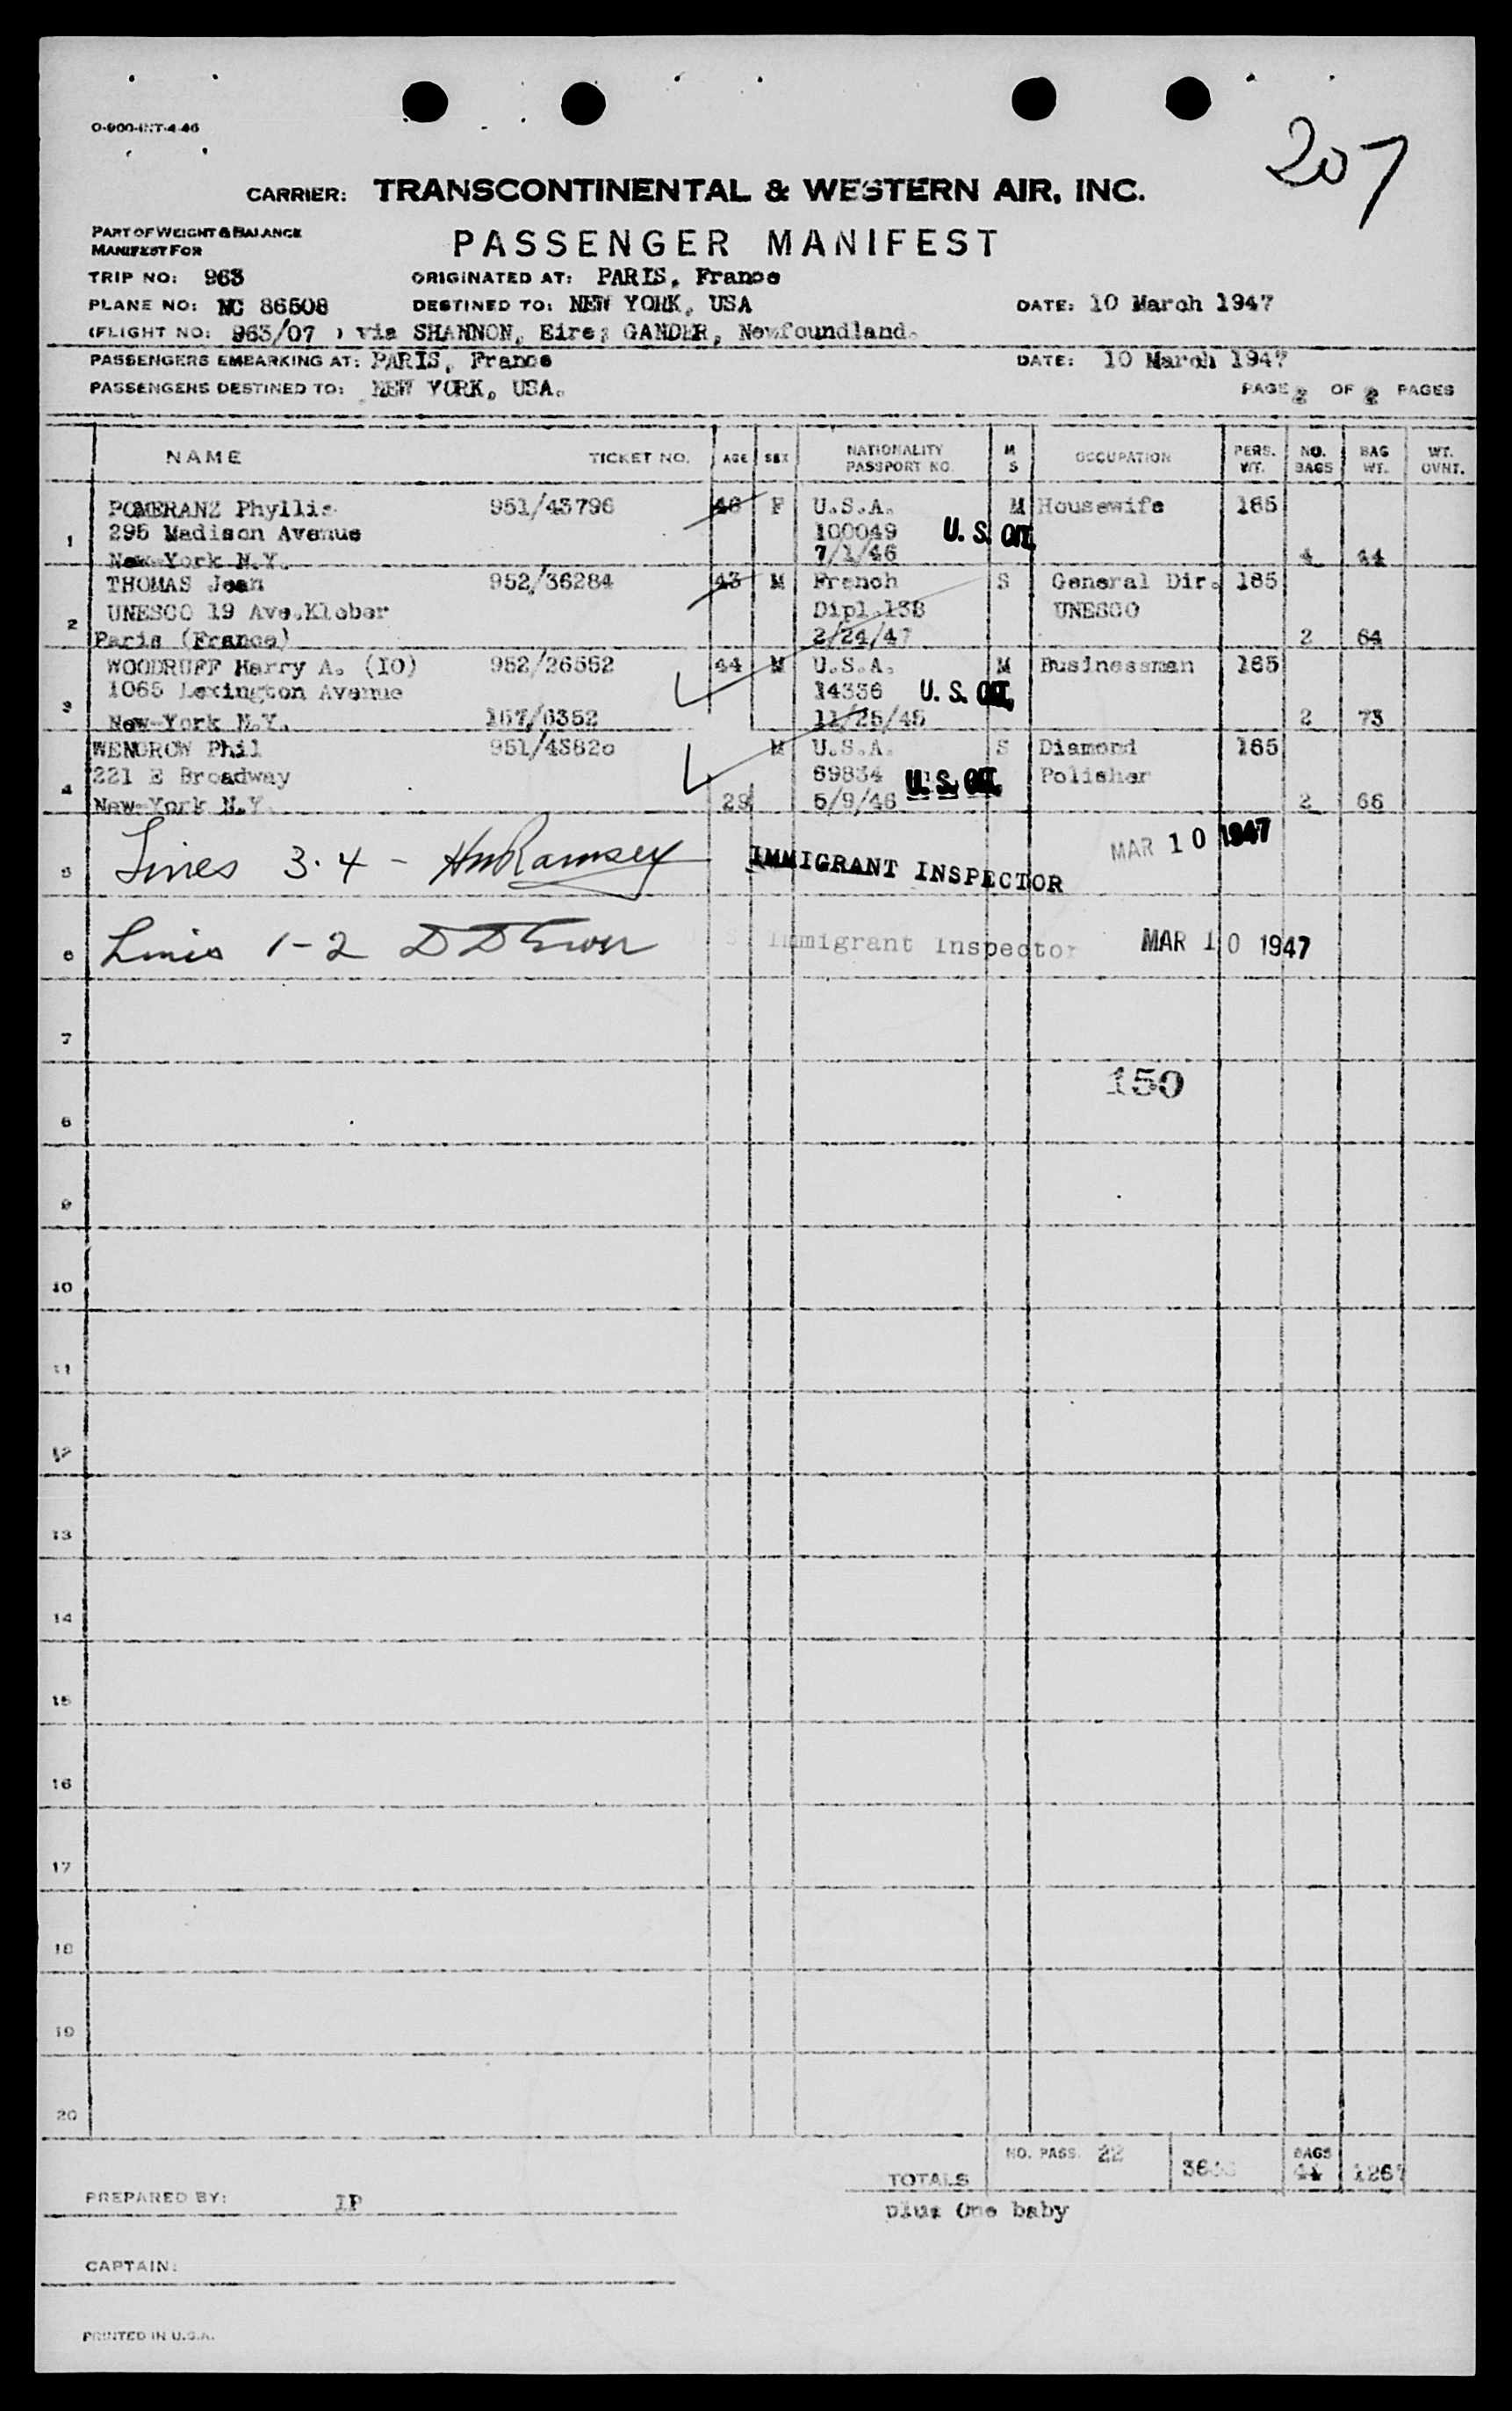 207
O-900-INT-4-46
CARRIER: TRANSCONTINENTAL & WESTERN AIR, INC.
PART OF WEIGHT & BALANCE
MANIFEST FOR
PASSENGER MANIFEST
TRIP NO: 963 ORIGINATED AT: PARIS, France
PLANE NO: NC 86508 DESTINED TO: NEW YORK, USA DATE: 10 March 1947
(FLIGHT NO: 963/07 ) via SHANNON, Eire; GANDER, Newfoundland.
PASSENGERS EMBARKING AT: PARIS, France DATE: 10 March 1947
PASSENGERS DESTINED TO: NEW YORK, USA. PAGE 2 OF 2 PAGES
NAME TICKET NO. AGE SEX NATIONALITY PASSPORT NO. M S OCCUPATION PERS. WT. NO. BAGS BAG WT. WT. OVNT.
POMERANZ Phyllis 951/43796 46 F U.S.A. M Housewife 165
295 Madison Avenue 100049 U.S. CIT.
1 New York N.Y. 7/1/46 4 44
THOMAS Jean 952/36284 43 M French S General Dir. 165
UNESCO 19 Ave.Kleber Dipl.138 UNESCO
2 Paris (France) 2/24/47 2 64
WOODRUFF Harry A. (IO) 952/26552 44 M U.S.A. M Businessman 165
1065 Lexington Avenue 14336 U.S. CIT.
3 New York N.Y. 157/6352 11/25/45 2 73
WENGROW Phil 951/43820 M U.S.A. S Diamond 165
221 E Broadway 69834 U.S. CIT. Polisher
4 New York N.Y. 29 5/9/46 2 66
5 Lines 3·4 - HMRamsey IMMIGRANT INSPECTOR MAR 10 1947
6 Lines 1-2 Immigrant Inspector MAR 10 1947
7
150
8
9
10
11
12
13
14
15
16
17
18
19
20
TOTALS NO. PASS. 22 BAGS 44 1267
plus One baby
PREPARED BY: IP
CAPTAIN:
PRINTED IN U.S.A.